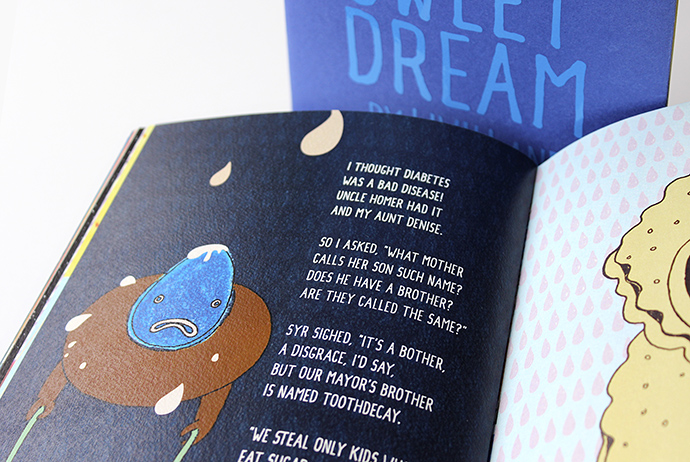 SWEET
DREAM
I THOUGHT DIABETES
WAS A BAD DISEASE!
UNCLE HOMER HAD IT
AND MY AUNT DENISE.
SO I ASKED, "WHAT MOTHER
CALLS HER SON SUCH NAME?
DOES HE HAVE A BROTHER?
ARE THEY CALLED THE SAME?"
SYR SIGHED, "IT'S A BOTHER,
A DISGRACE, I'D SAY,
BUT OUR MAYOR'S BROTHER
IS NAMED TOOTHDECAY.
"WE STEAL ONLY KIDS
EAT